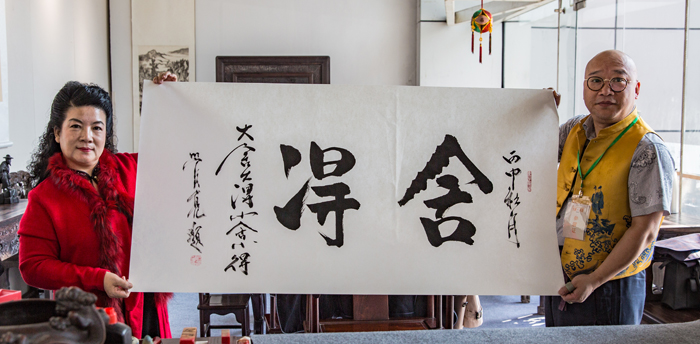 丙申秋月
舍得
大舍大得小舍小得